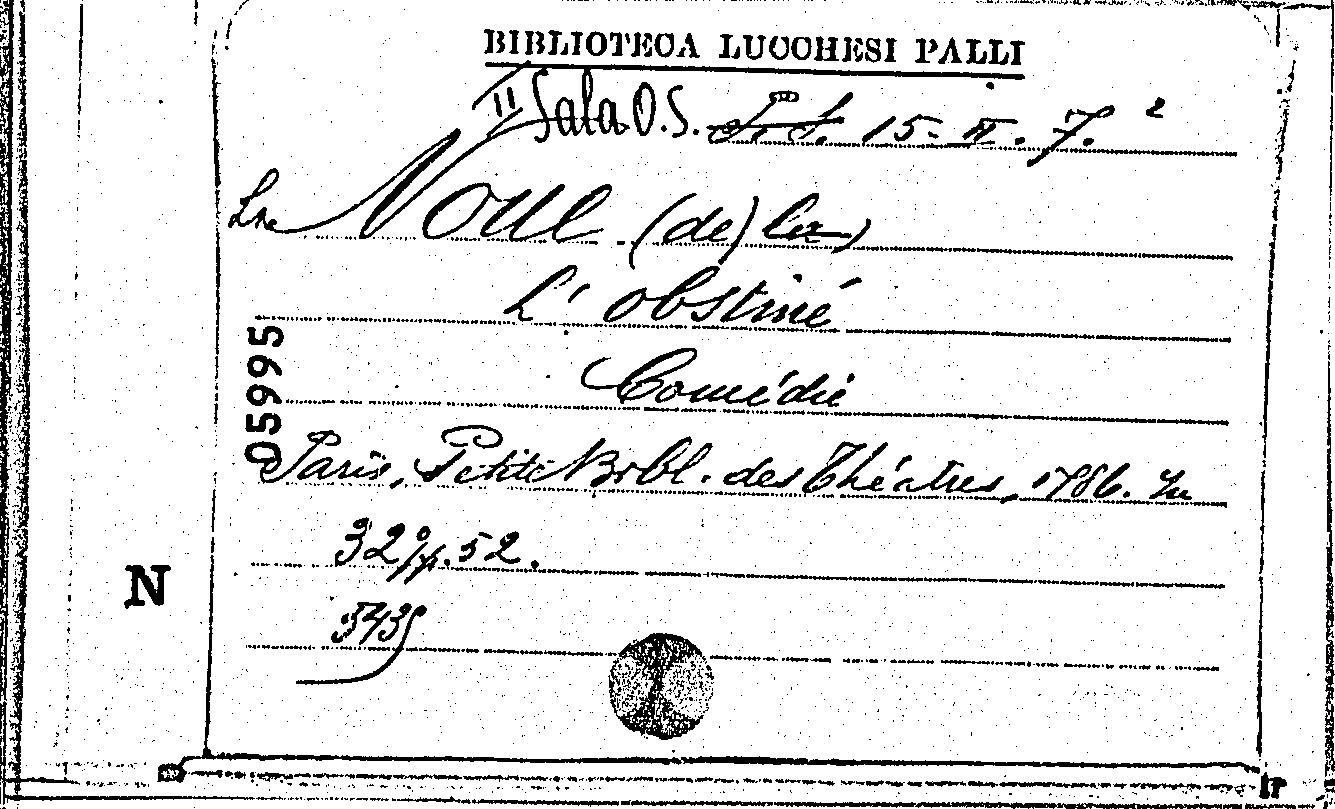 BIBLIOTECA LUCCHESI PALLI
II Sala O.S. 15-II. 7. 2
La Noue (de) la)
L' obstiné
Comédie
05995
Paris, Petite Bibl. des Théâtres, 1786. In
32º p. 52.
N